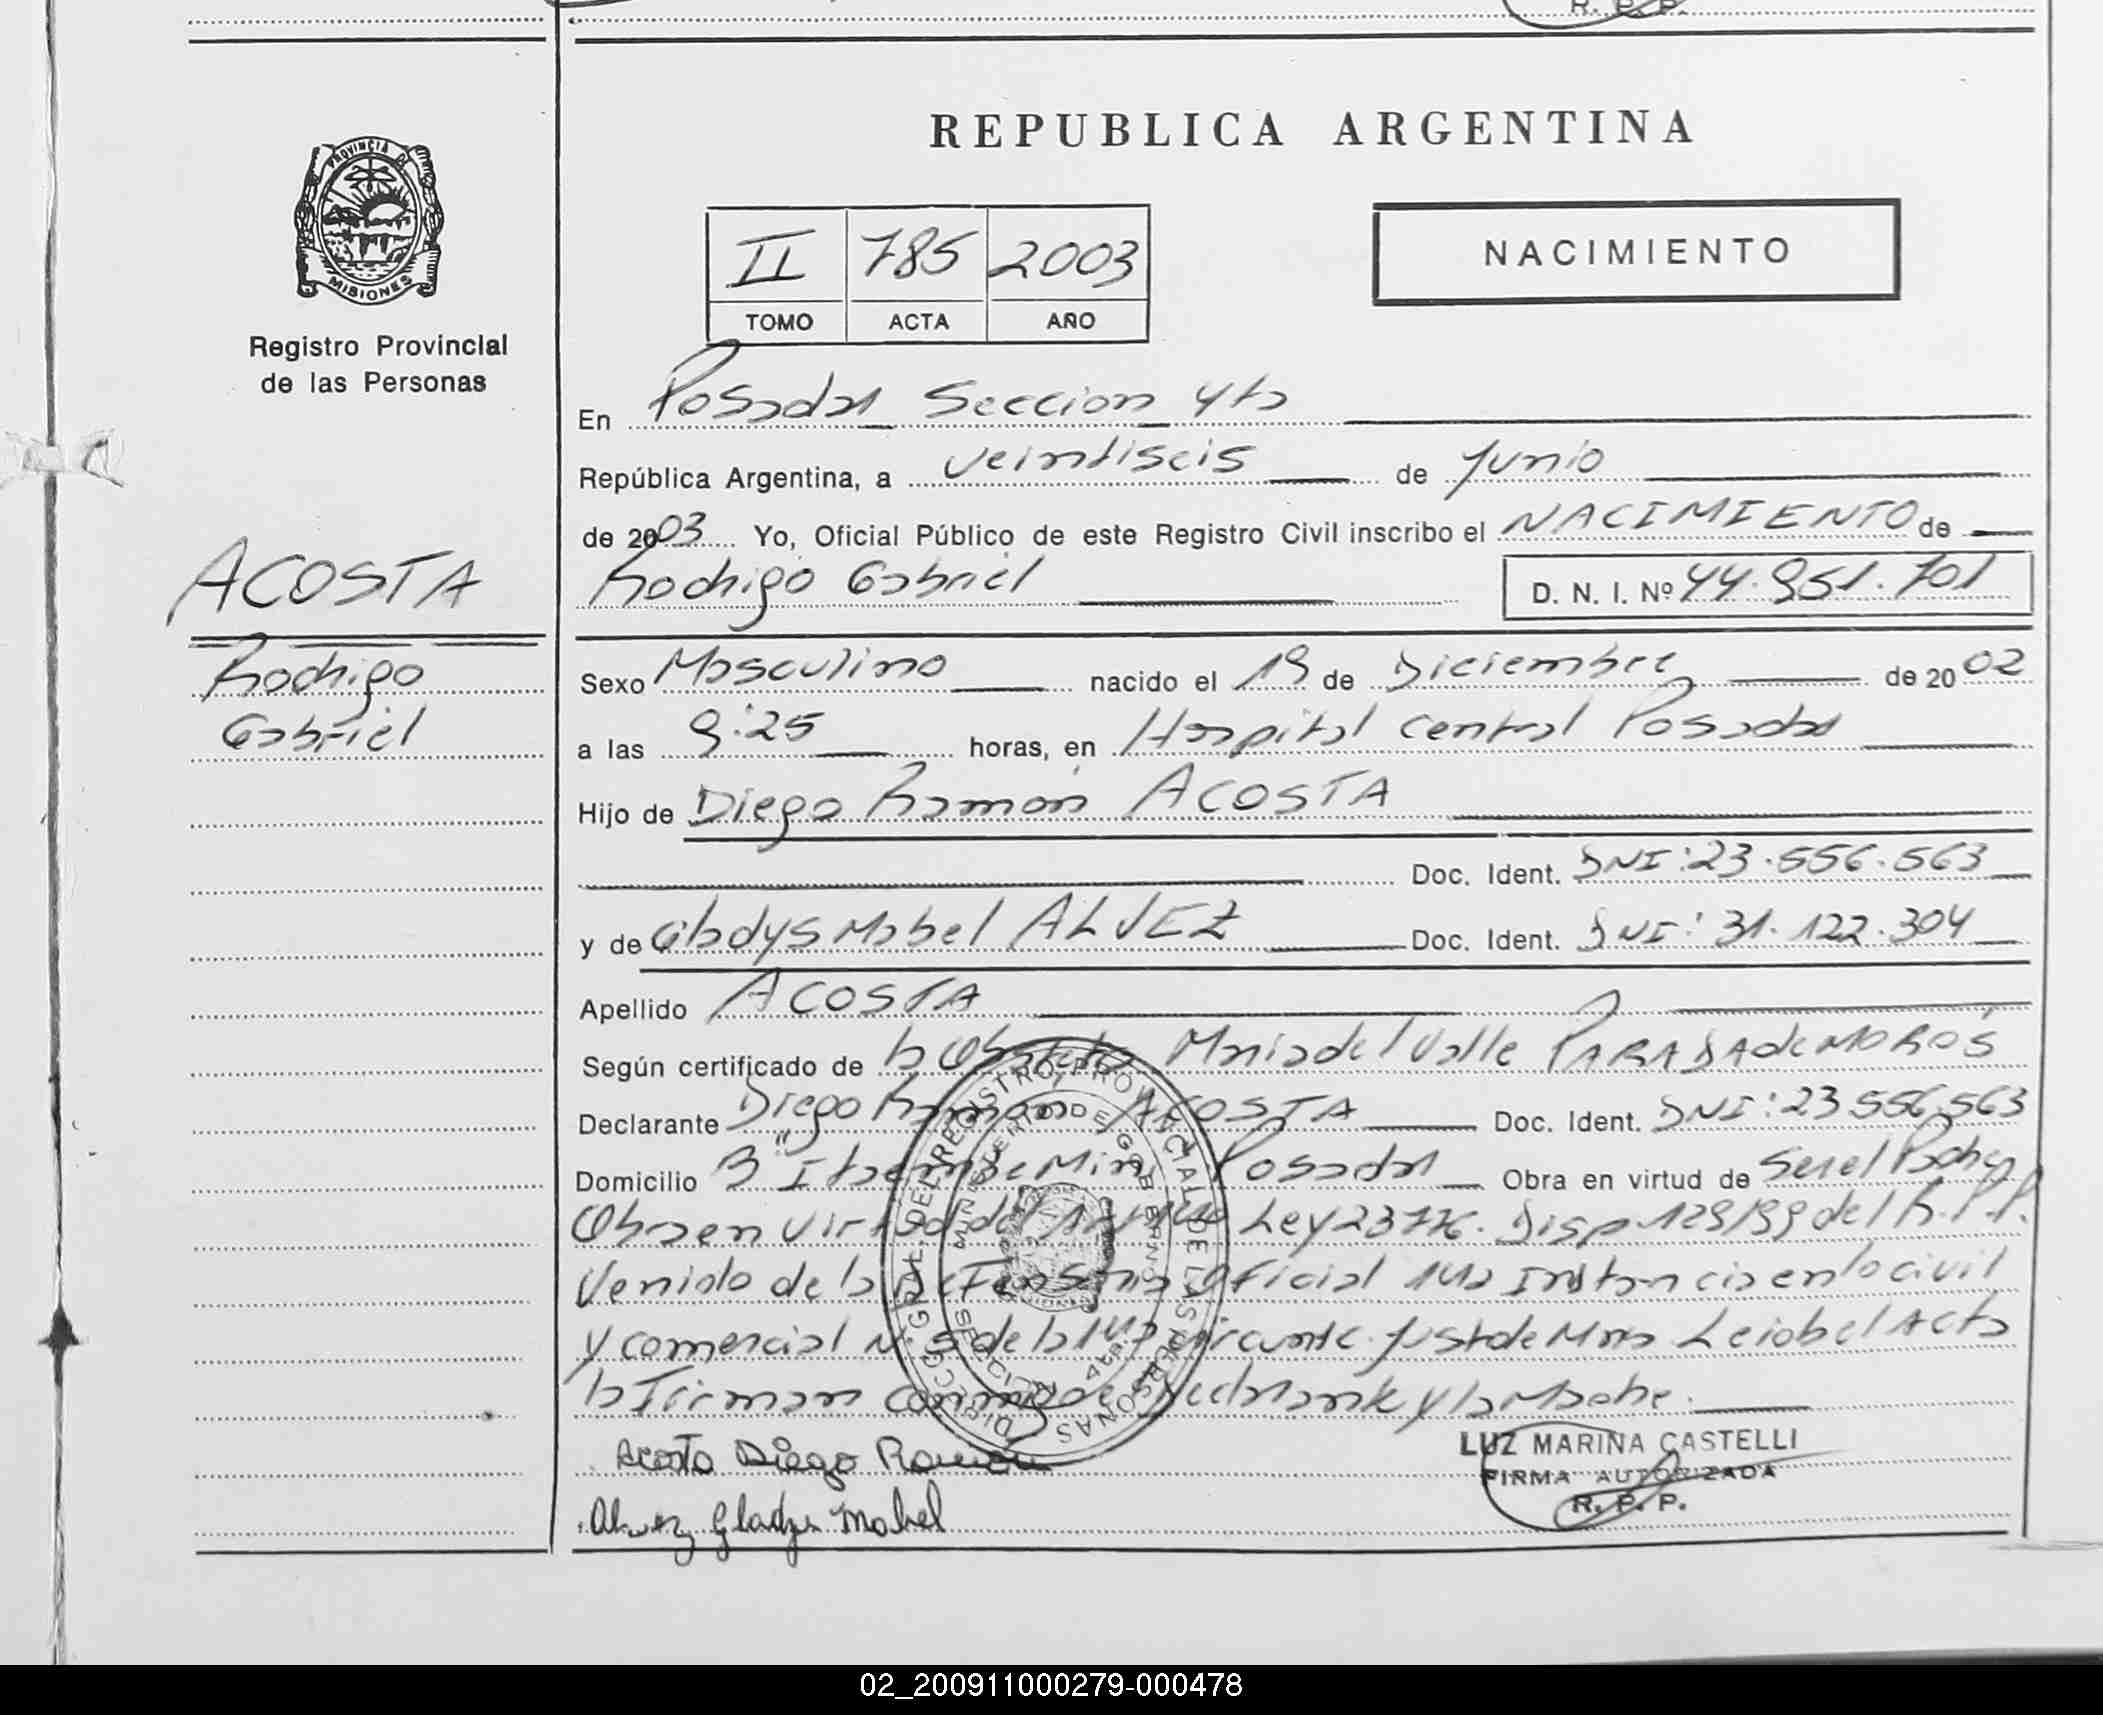 R. P. P.
REPUBLICA ARGENTINA
PROVINCIA DE
MISIONES
Registro Provincial
de las Personas
II 785 2003
TOMO ACTA AÑO
NACIMIENTO
En Posadas Seccion 4ta
República Argentina, a veintiseis de Junio
de 2003 Yo, Oficial Público de este Registro Civil inscribo el NACIMIENTO de
ACOSTA
Rodrigo Gabriel D. N. I. Nº 44.951.701
Rodrigo
Gabriel
Sexo Masculino nacido el 19 de Diciembre de 2002
a las 9:25 horas, en Hospital Central Posadas
Hijo de Diego Ramón ACOSTA
Doc. Ident. DNI: 23.556.563
y de Gladys Mabel ALVEZ Doc. Ident. DNI: 31.122.304
Apellido ACOSTA
Según certificado de la Obstetra Maria del Valle PARADA de MOROS
Declarante Diego Ramon ACOSTA Doc. Ident. DNI: 23.556.563
Domicilio B° Itaembe Mini Posadas Obra en virtud de Ser el Padre
Obra en virtud del Ley 23776. Disp. 129/99 del R.P.P.
Venido de la Defensoria Oficial 1ra Instancia en lo civil
y comercial N. 5 de la 1ra circunsc. Just de Mnes Leida el Acta
la firman conmigo el Declarante y la Madre.
DIRECC. GRAL. DEL REGISTRO PROVINCIAL DE LAS PERSONAS
MINISTERIO DE GOBIERNO
SECCION 4ta.
Acosta Diego Ramón
Alvez Gladys Mabel
LUZ MARINA CASTELLI
FIRMA AUTORIZADA
R. P. P.
02_200911000279-000478